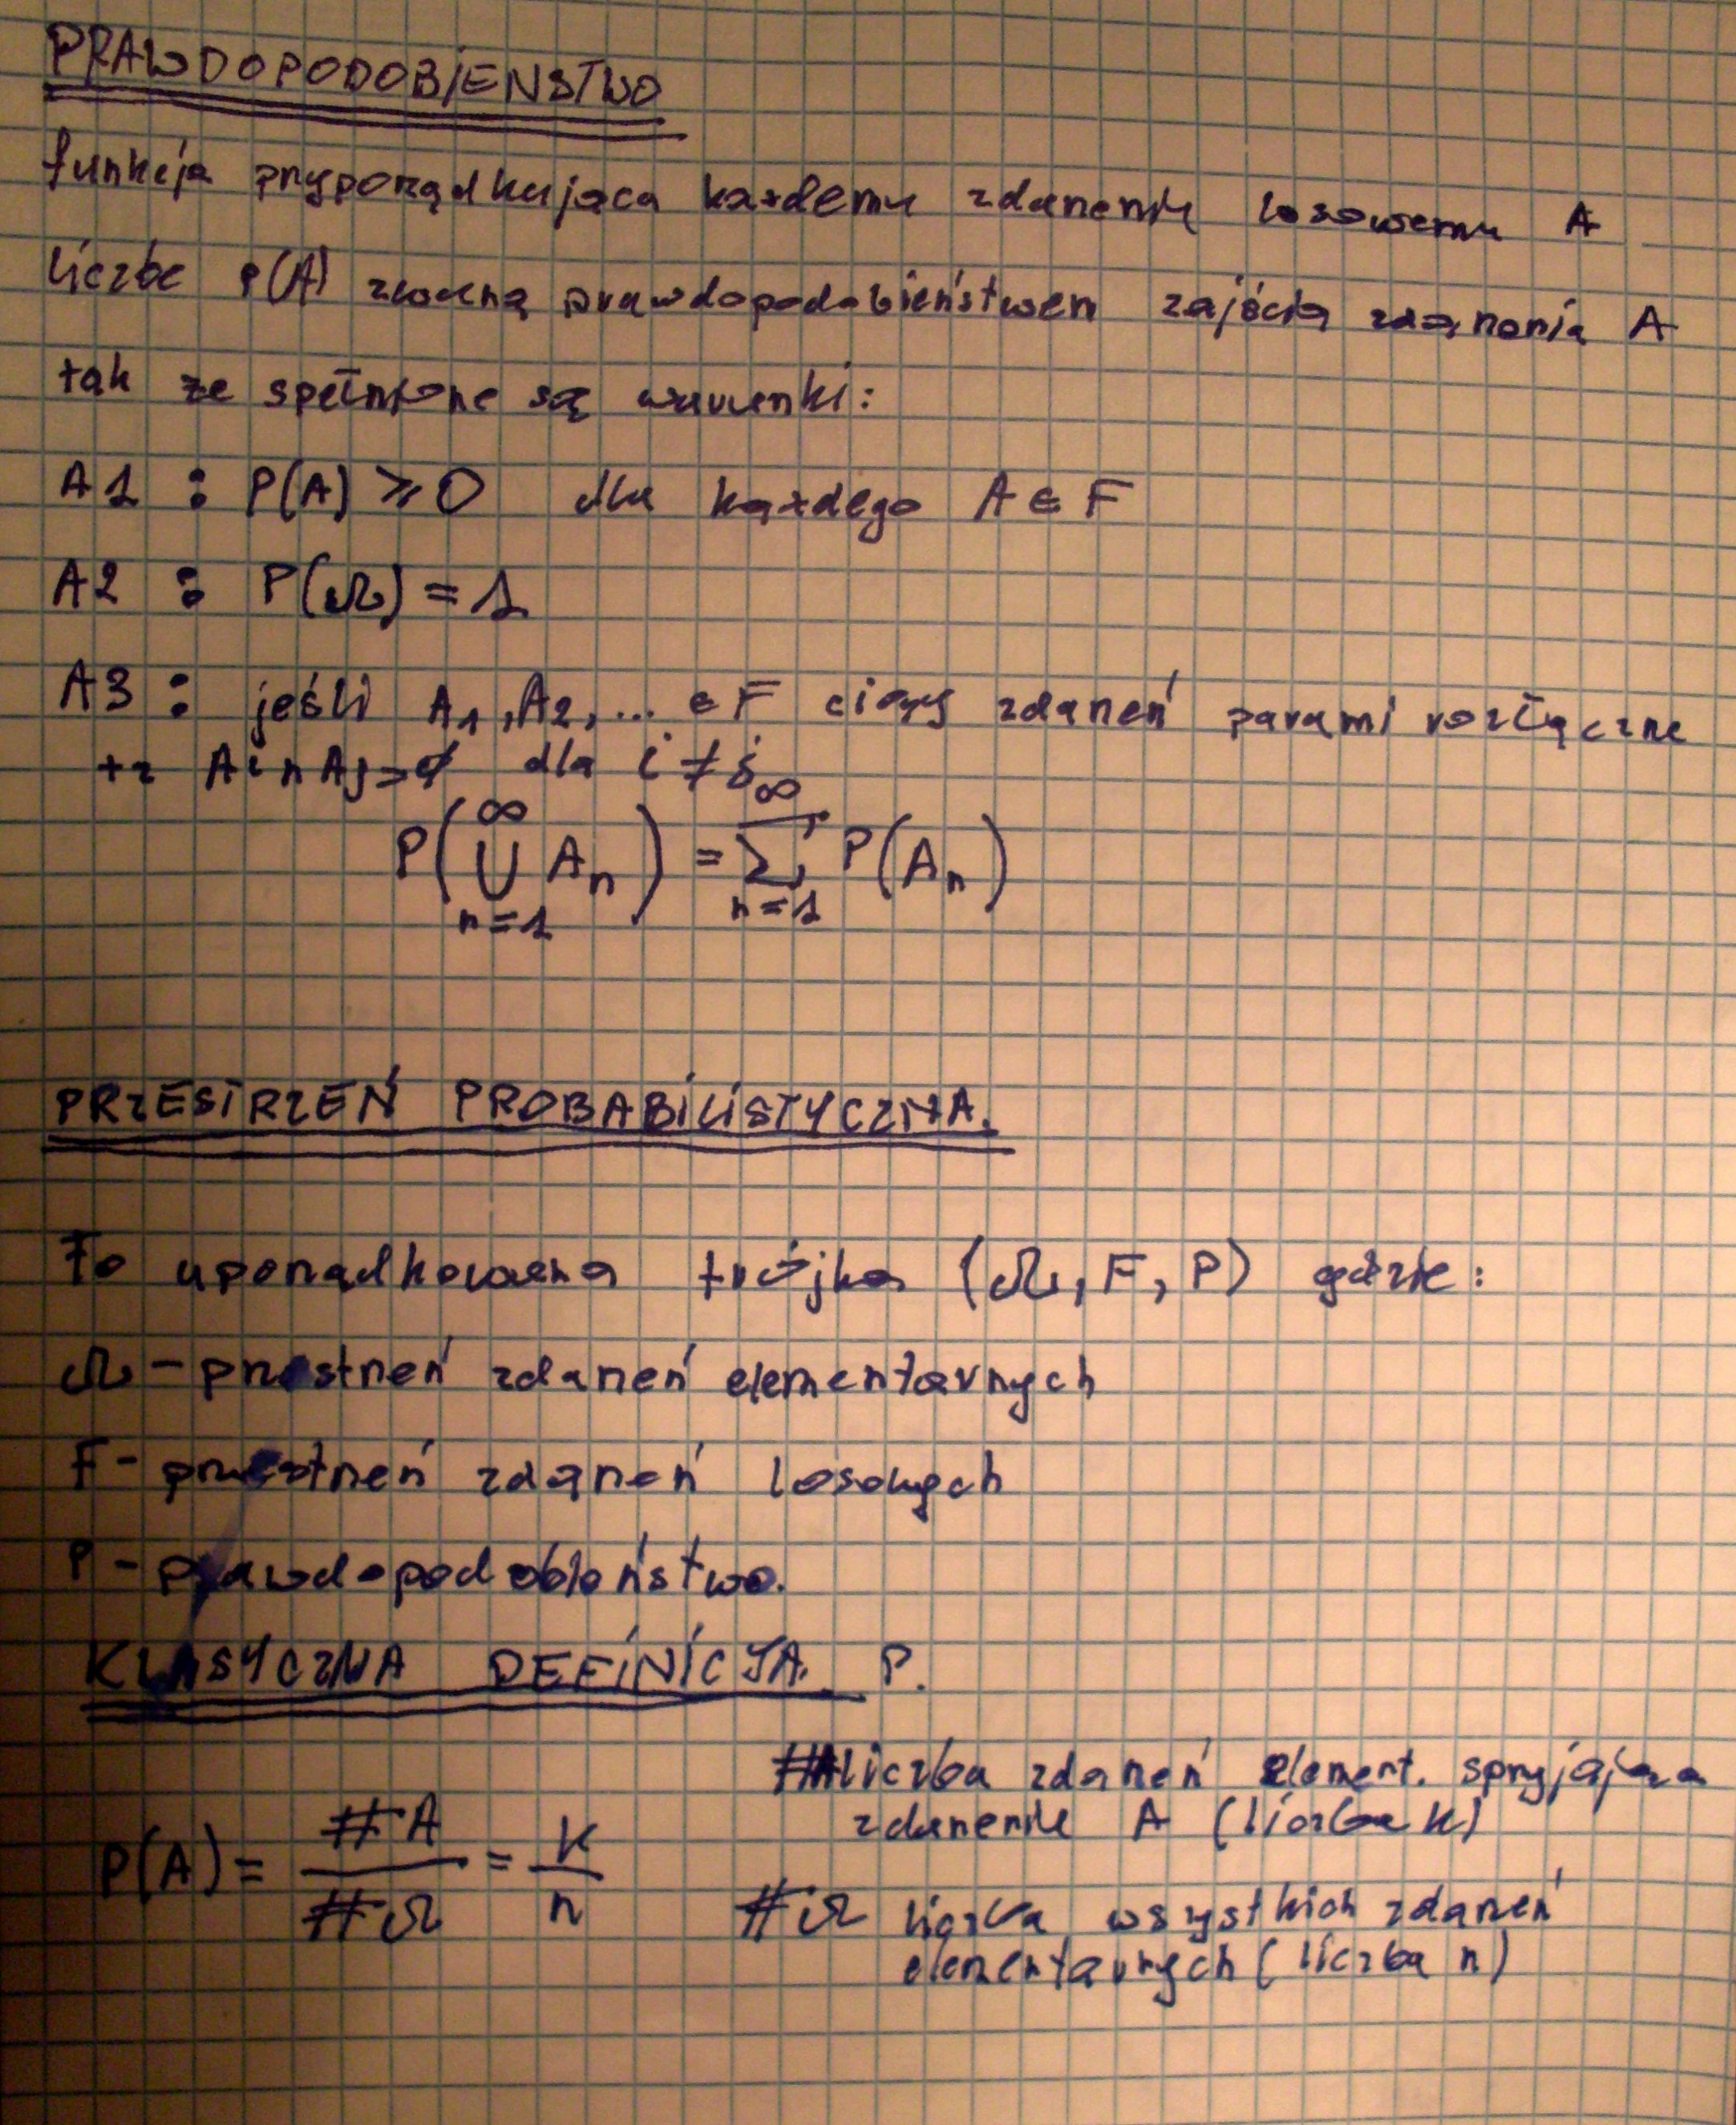 PRAWDOPODOBIENSTWO
funkcja przyporządkująca każdemu zdarzeniu losowemu A
liczbe P(A) zwaną prawdopodobieństwem zajścia zdarzenia A
tak że spełnione są warunki:
A1 : P(A) ⩾ 0 dla każdego A ∈ F
A2 : P(Ω) = 1
A3 : jeśli A₁, A₂, ... ∈ F ciągy zdarzeń parami rozłączne
tz Ai ∩ Aj = ∅ dla i ≠ j
P(⋃_{n=1}^{∞} A_n) = ∑_{n=1}^{∞} P(A_n)
PRZESTRZEŃ PROBABILISTYCZNA.
To uporządkowana trójka (Ω, F, P) gdzie:
Ω - przestrzeń zdarzeń elementarnych
F - przestrzeń zdarzeń losowych
P - prawdopodobieństwo.
KLASYCZNA DEFINICJA. P.
#A liczba zdarzeń element. sprzyjająca
zdarzeniu A (liczba k)
P(A) = #A / #Ω = k / n
#Ω liczba wszystkich zdarzeń
elementarnych (liczba n)